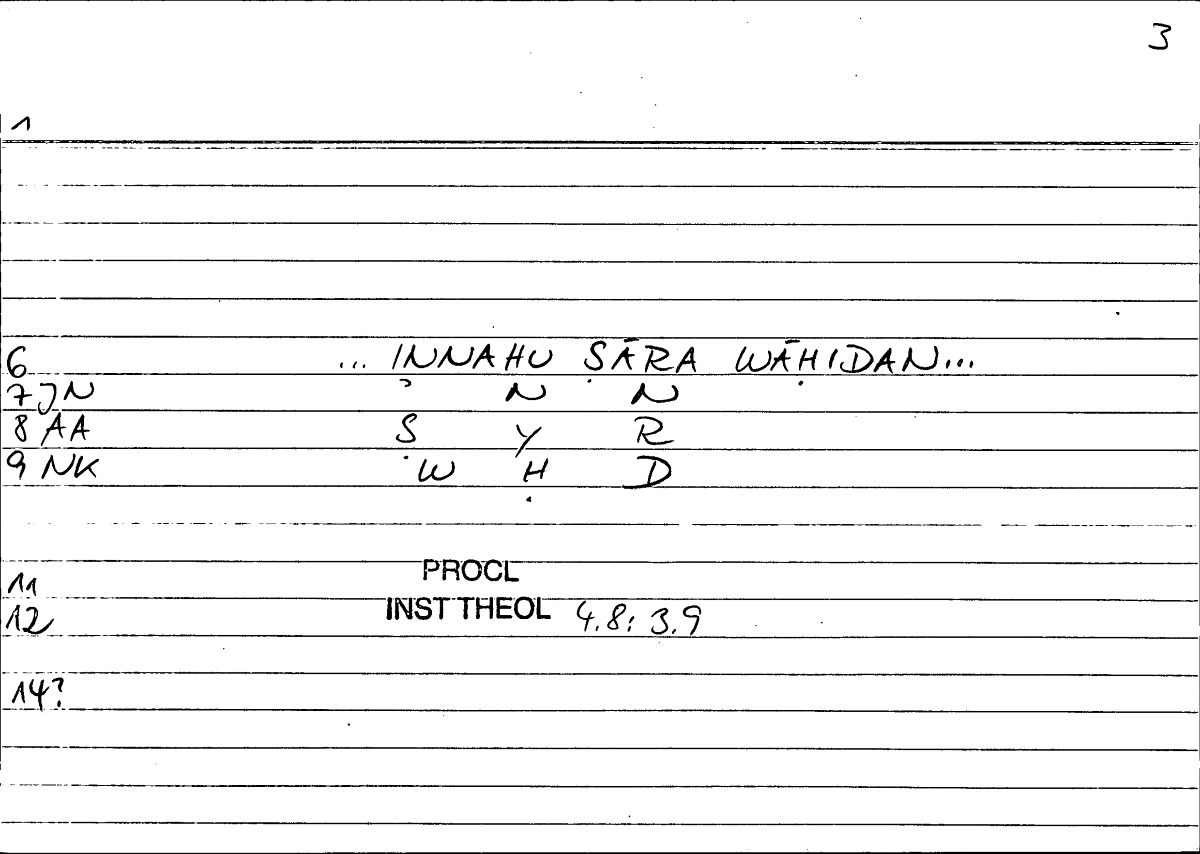 3
1
6 ... INNAHU ṢĀRA WĀḤIDAN...
7 JN ʾ N N
8 AA Ṣ Y R
9 NK W Ḥ D
11 PROCL
12 INST THEOL 4.8: 3.9
14?